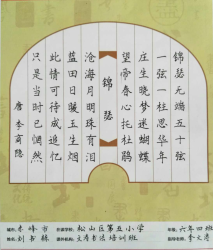 锦瑟
锦瑟无端五十弦
一弦一柱思华年
庄生晓梦迷蝴蝶
望帝春心托杜鹃
沧海月明珠有泪
蓝田日暖玉生烟
此情可待成追忆
只是当时已惘然
唐 李商隐
城市:赤峰市
所在学校:松山区第五小学
年级:六年四班
姓名:刘书赫
课外机构:文彦书法培训班